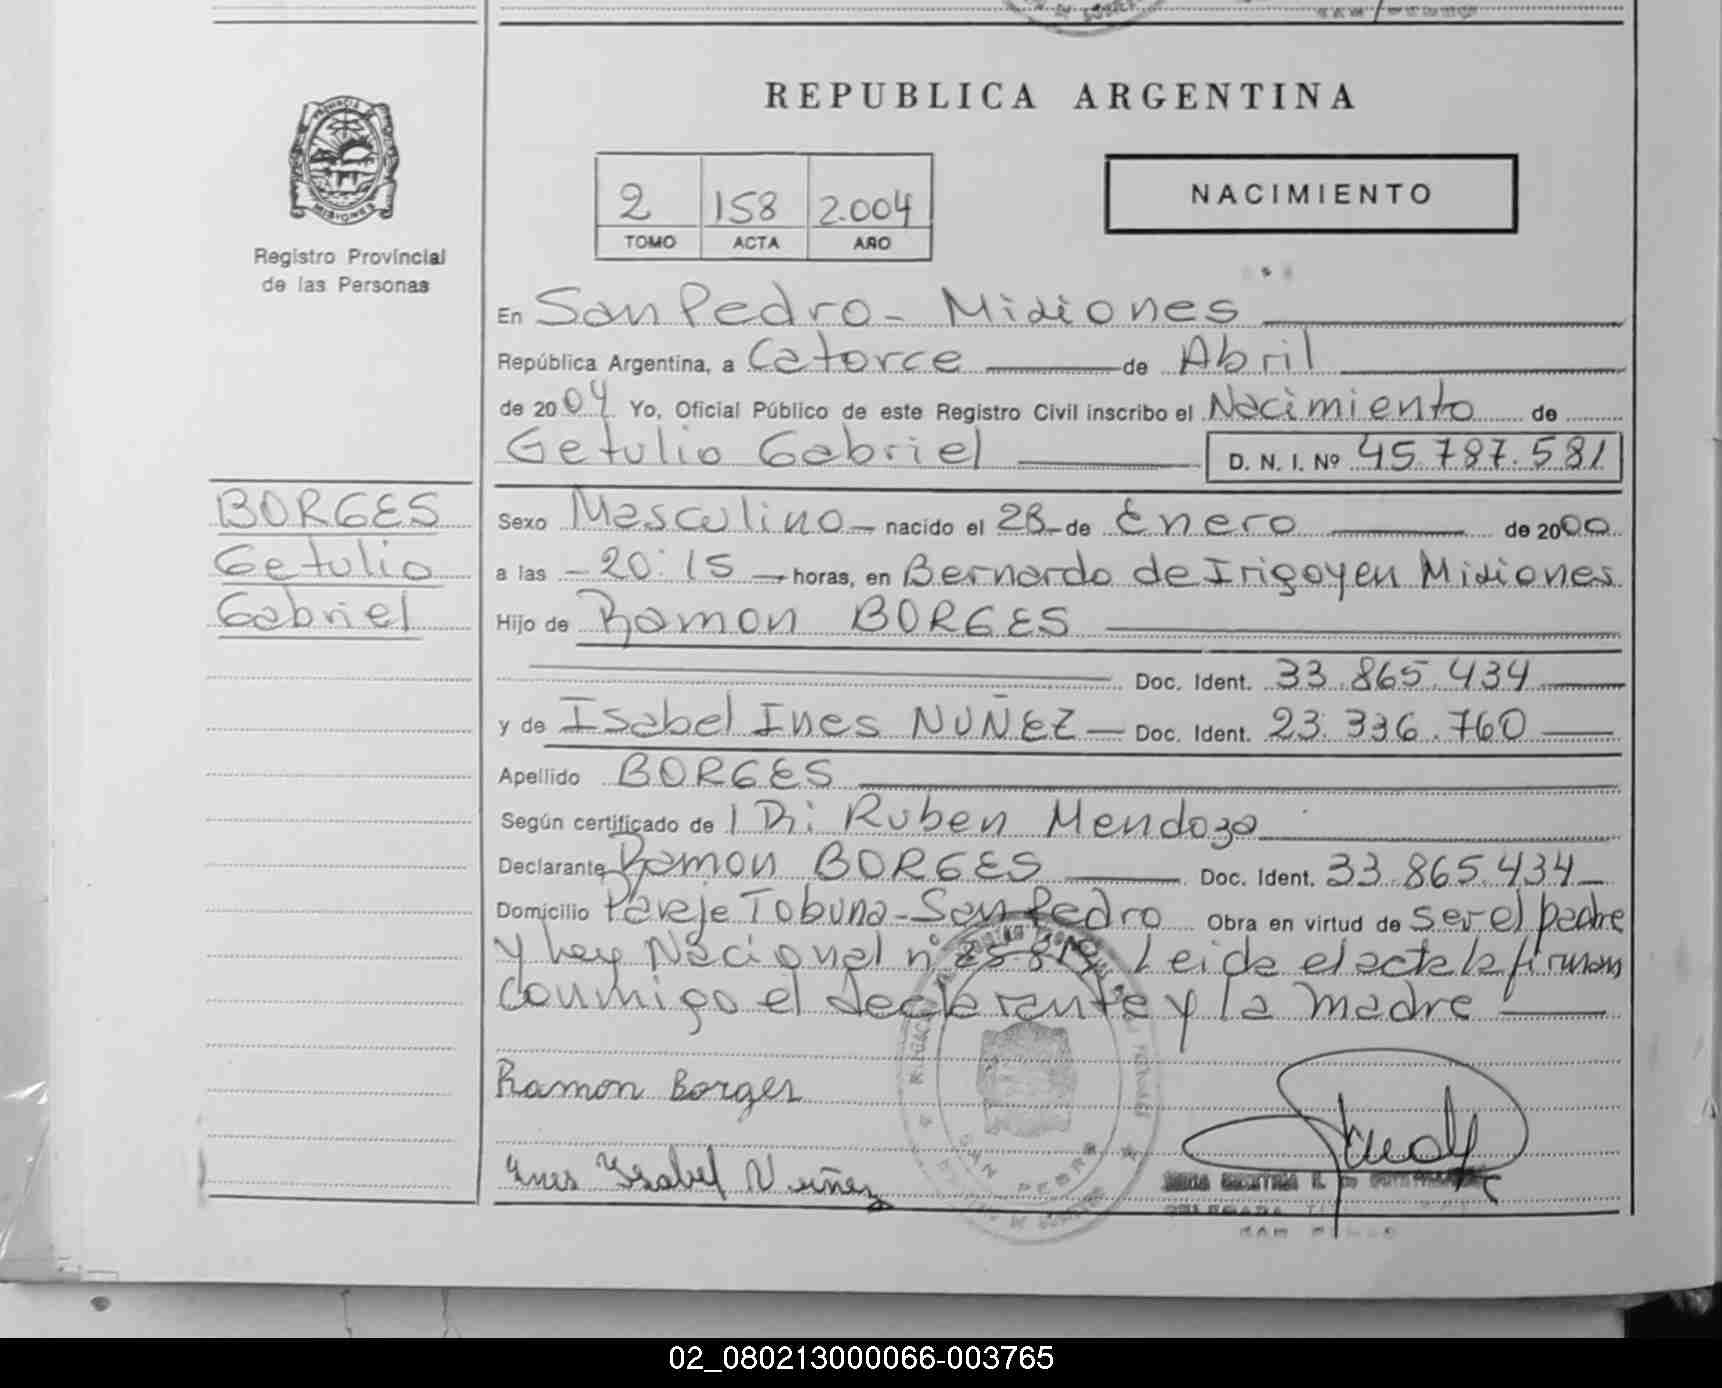 REPUBLICA ARGENTINA
PROVINCIA
MISIONES
Registro Provincial
de las Personas
2 158 2.004
TOMO ACTA AÑO
NACIMIENTO
En San Pedro - Misiones
República Argentina, a Catorce de Abril
de 2004 Yo, Oficial Público de este Registro Civil inscribo el Nacimiento de
Getulio Gabriel D. N. I. Nº 45.787.581
BORGES
Getulio
Gabriel
Sexo Masculino nacido el 28 de Enero de 2000
a las 20:15 horas, en Bernardo de Irigoyen Misiones
Hijo de Ramon BORGES
Doc. Ident. 33.865.434
y de Isabel Ines NUÑEZ Doc. Ident. 23.336.760
Apellido BORGES
Según certificado de Ruben Mendoza
Declarante Ramon BORGES Doc. Ident. 33.865.434
Domicilio Paraje Tobuna - San Pedro Obra en virtud de ser el padre
y ley Nacional nº Leida el acta la firman
conmigo el declarante y la madre
Ramon Borges
Ines Ysabel Nuñez
SAN PEDRO
02_080213000066-003765